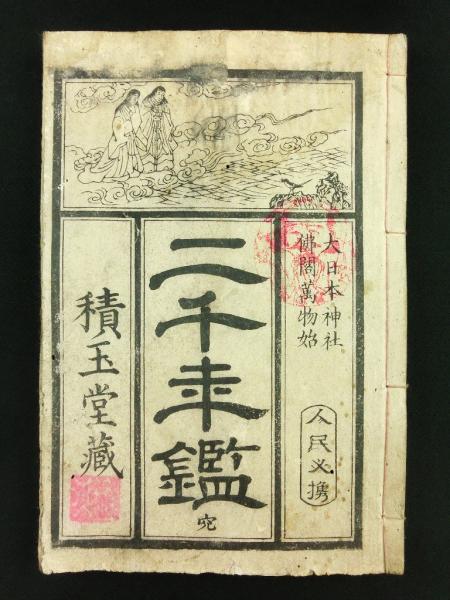 大日本神社
佛閣萬物始
人民必携
二千年鑑
完
積玉堂藏